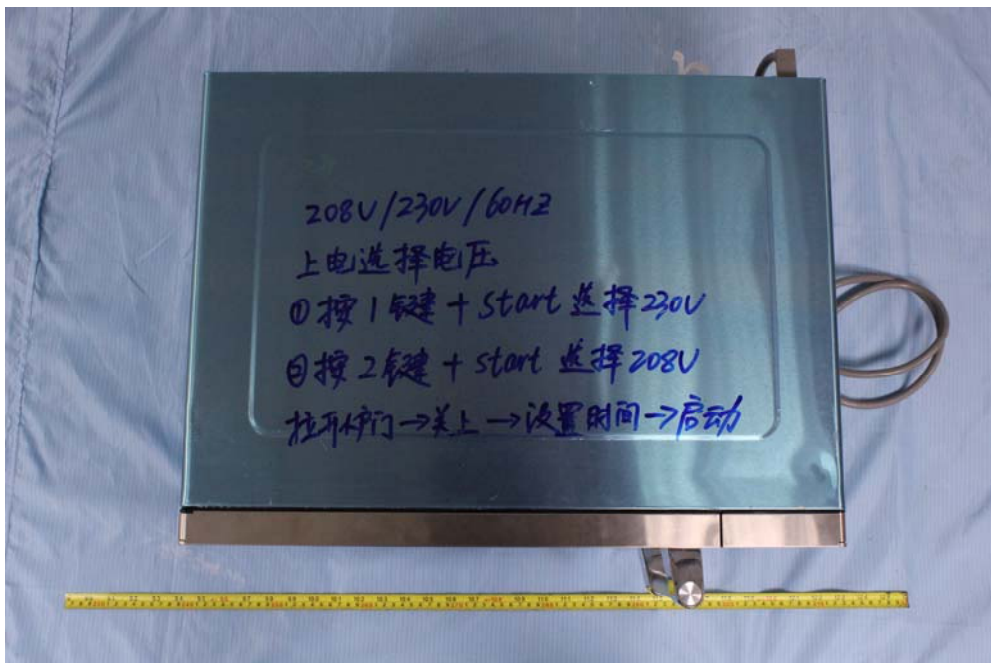 208V/230V/60HZ
上电选择电压
①按1键+start选择230V
②按2键+start选择208V
拉开炉门→关上→设置时间→启动